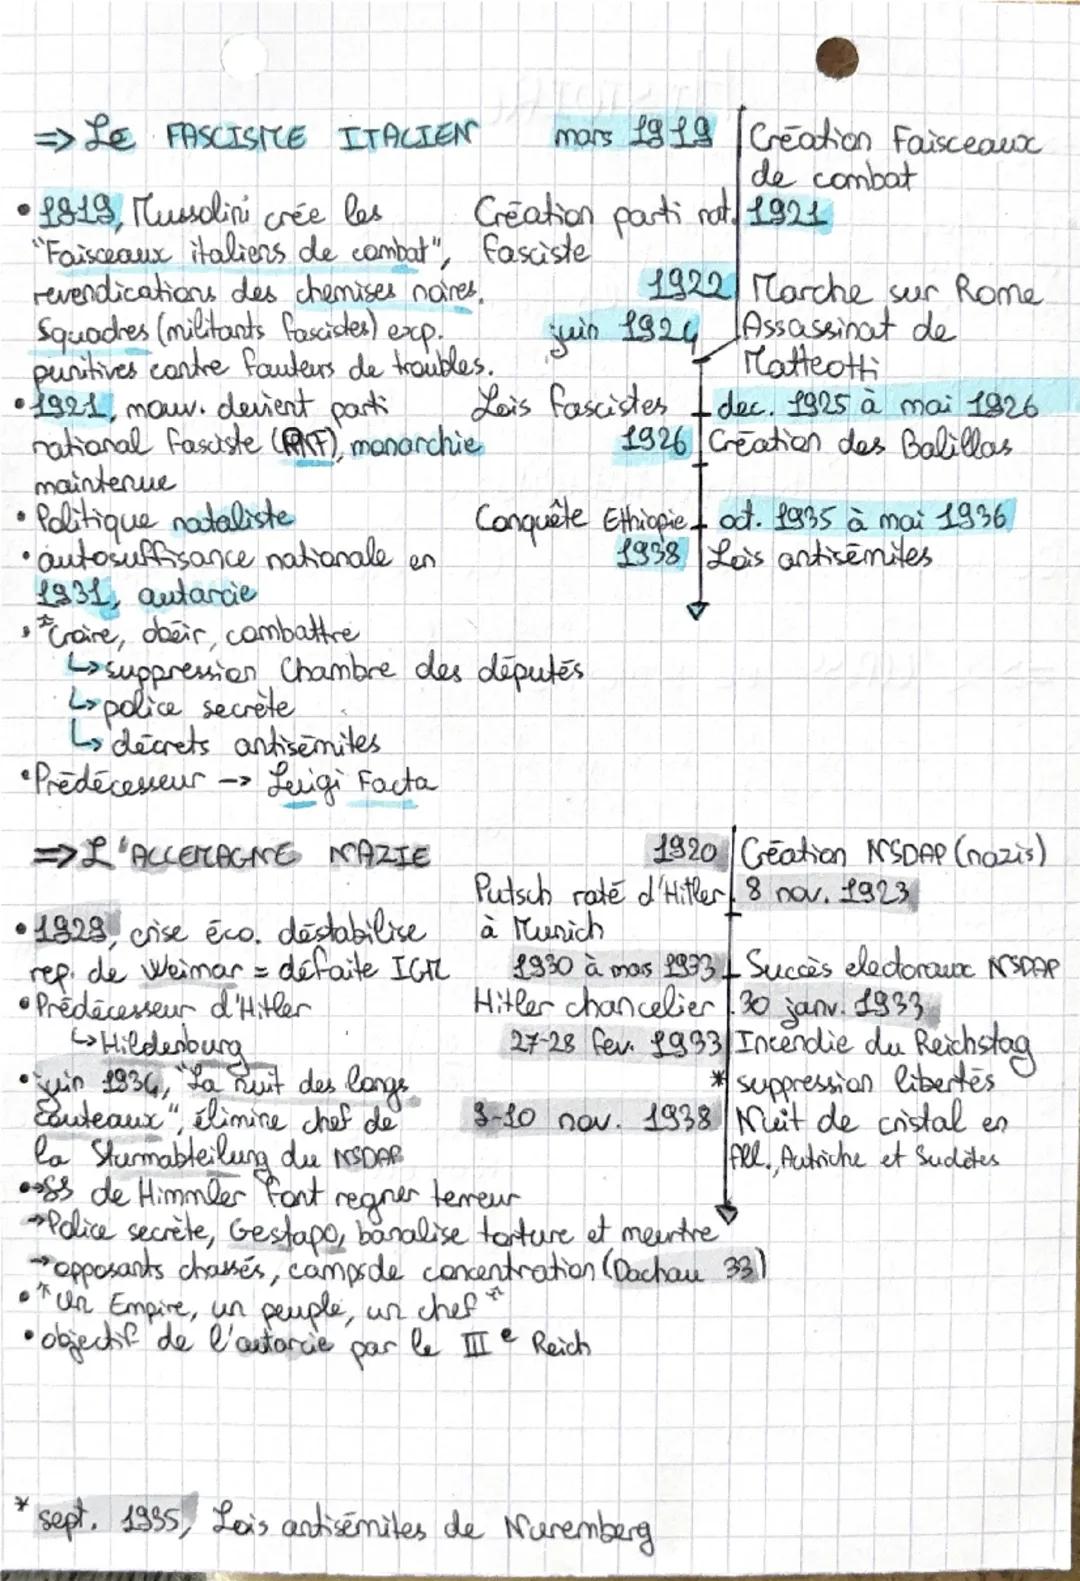 => LE FASCISME ITALIEN
mars 1919 Création Faisceaux
de combat
• 1919, Mussolini crée les
"Faisceaux italiens de combat",
revendications des chemises noires.
Squadres (militants fascistes) exp.
punitives contre fauteurs de troubles.
• 1921, mouv. devient parti
national fasciste (PNF), monarchie
maintenue
• Politique nataliste
• autosuffisance nationale en
1931, autarcie
• "Croire, obéir, combattre
↳ suppression Chambre des députés
↳ police secrète
↳ décrets antisémites
• Prédécesseur -> Luigi Facta
Création parti nat. 1921
fasciste
1922 Marche sur Rome
juin 1924 Assassinat de
Matteotti
Lois fascistes dec. 1925 à mai 1926
1926 Création des Balillas
Conquête Ethiopie oct. 1935 à mai 1936
1938 Lois antisémites
=> L'ALLEMAGNE NAZIE
• 1929, crise éco. déstabilise
rep. de Weimar = défaite 1GM
• Prédécesseur d'Hitler
↳ Hildenburg
• juin 1934, "La nuit des longs
couteaux", élimine chef de
la Sturmabteilung du NSDAP
•→SS de Himmler font regner terreur
→Police secrète, Gestapo, banalise torture et meurtre
→opposants chassés, camps de concentration (Dachau 33)
• "Un Empire, un peuple, un chef"
• objectif de l'autarcie par le IIIe Reich
1920 Création NSDAP (nazis)
Putsch raté d'Hitler 8 nov. 1923
à Munich
1930 à mars 1933 Succès electoraux NSDAP
Hitler chancelier 30 janv. 1933
27-28 fev. 1933 Incendie du Reichstag
* suppression libertés
9-10 nov. 1938 Nuit de cristal en
All., Autriche et Sudètes
* sept. 1935, Lois antisémites de Nuremberg